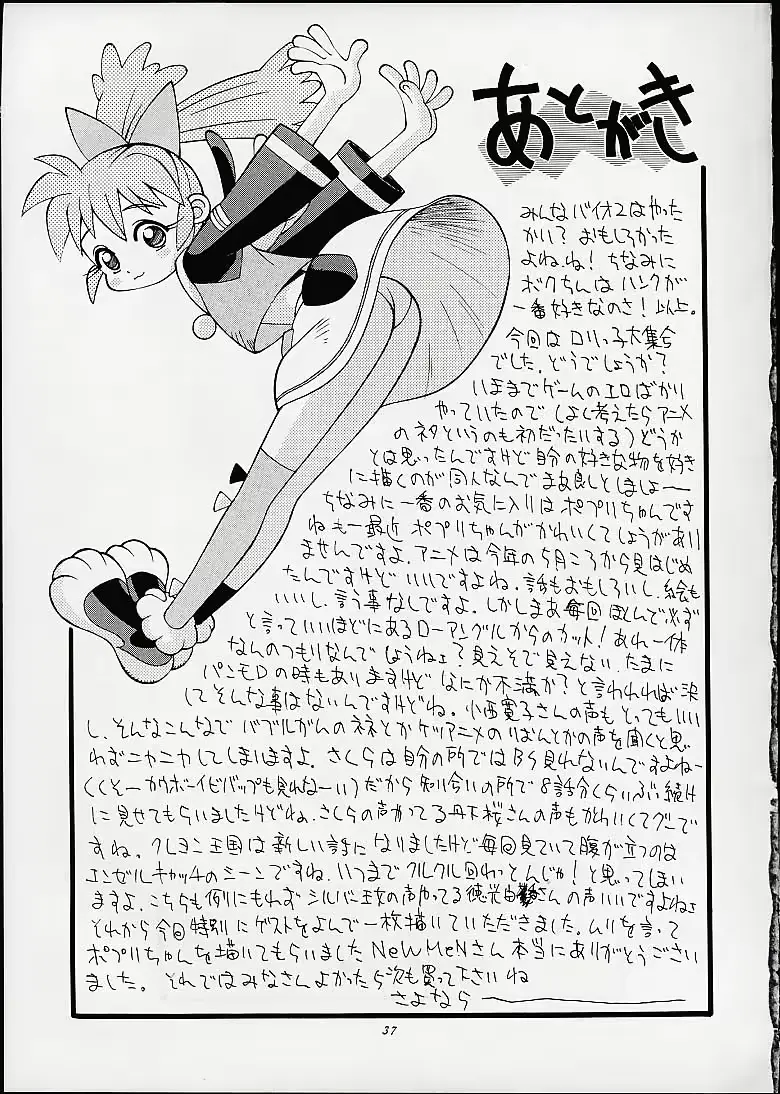 あとがき
みんなバイオ2はやった
かい？おもしろかった
よね、ね！ちなみに
ボクちんはハンクが
一番好きなのさ！以上。
今回はロリっ子大集合
でした、どうでしょうか？
いままでゲームのエロばかり
やっていたので(よく考えたらアニメ
のネタというのも初だったりする)どうか
とは思ったんですけど自分の好きな物を好き
に描くのが同人なんでまぁ良しとしましょー
ちなみに一番のお気に入りはポプリちゃんです
ねもー最近ポプリちゃんがかわいくてしょうがあり
ませんですよ、アニメは今年の5月ころから見はじめ
たんですけどいいですよね。話もおもしろいし、絵も
いいし、言う事なしですよ。しかしまあ毎回ほとんど必ず
と言っていいほどにあるローアングルからのカット！あれ一体
なんのつもりなんでしょうねェ？見えそで見えない、たまに
パンモロの時もありますけどなにか不満か？と言われれば決
してそんな事はないんですけどね。小西寛子さんの声もとってもいい
し、そんなこんなでバブルがんのネネとかケツアニメのりぼんとかの声を聞くと思
わずニヤニヤしてしまいますよ。さくらは自分の所ではBS見れないんですよね~
(くそーカウボーイビバップも見れなーい)だから知り合いの所で8話分くらいぶっ続け
に見せてもらいましたけどね、さくらの声やってる丹下桜さんの声もかわいくてグーで
すね。クレヨン王国は新しい話になりましたけど毎回見ていて腹が立つのは
エンゼルキャッチのシーンですね、いつまでクルクル回っとんじゃ！と思ってしまい
ますよ、こちらも例にもれずシルバー王女の声やってる徳光由さんの声いいですよねェ
それから今回特別にゲストをよんで一枚描いていただきました。ムリを言って
ポプリちゃんを描いてもらいましたNeWMeNさん本当にありがとうござい
ました。それではみなさんよかったら次も買って下さいね
さよなら
37